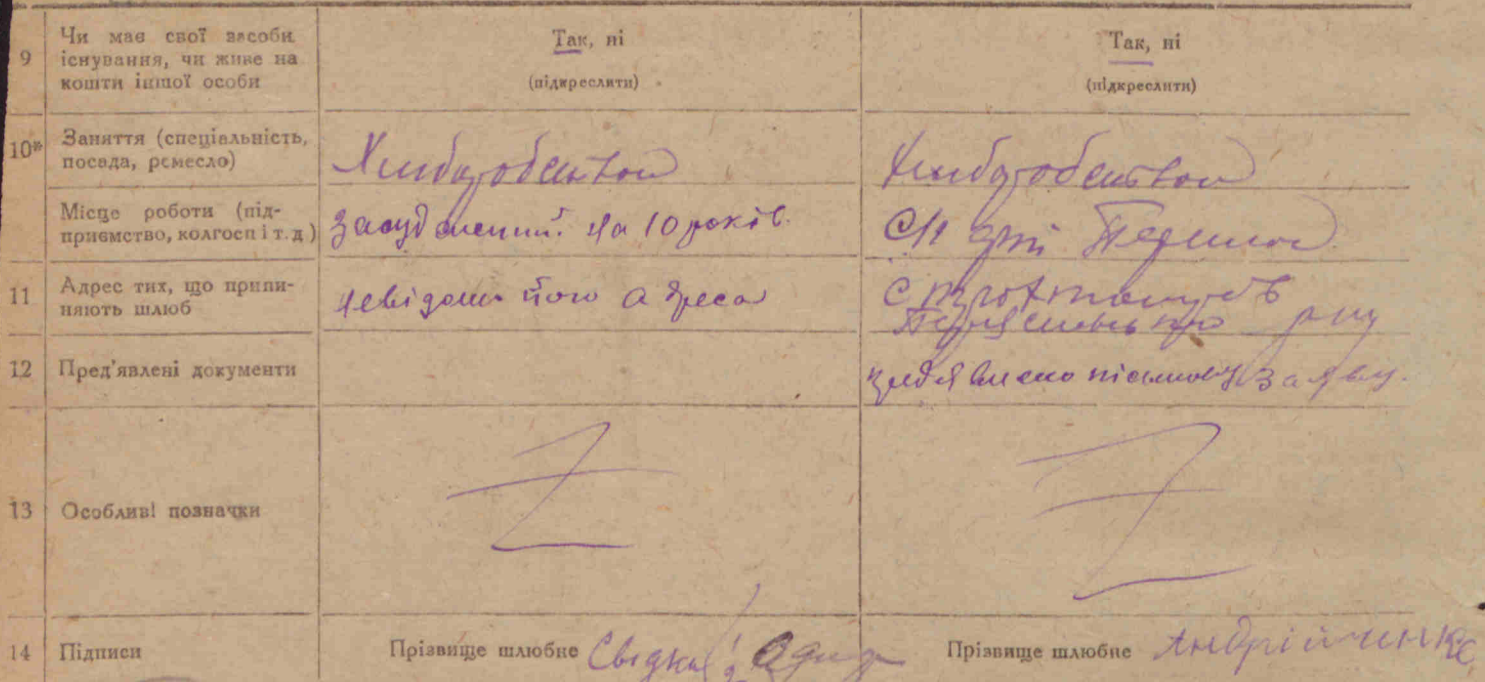 9 Чи має свої засоби існування, чи живе на кошти іншої особи
Так, ні
(підкреслити)
Так, ні
(підкреслити)
10* Заняття (спеціальність, посада, ремесло)
Хлиборобством
Хлиборобством
Місце роботи (підприємство, колгосп і т. д.)
Засуджений на 10 років
11 Адрес тих, що припиняють шлюб
невідома його адреса
с
р-ну
12 Пред'явлені документи
письмову заяву.
13 Особливі позначки
14 Підписи
Прізвище шлюбне
Прізвище шлюбне Андрійченко